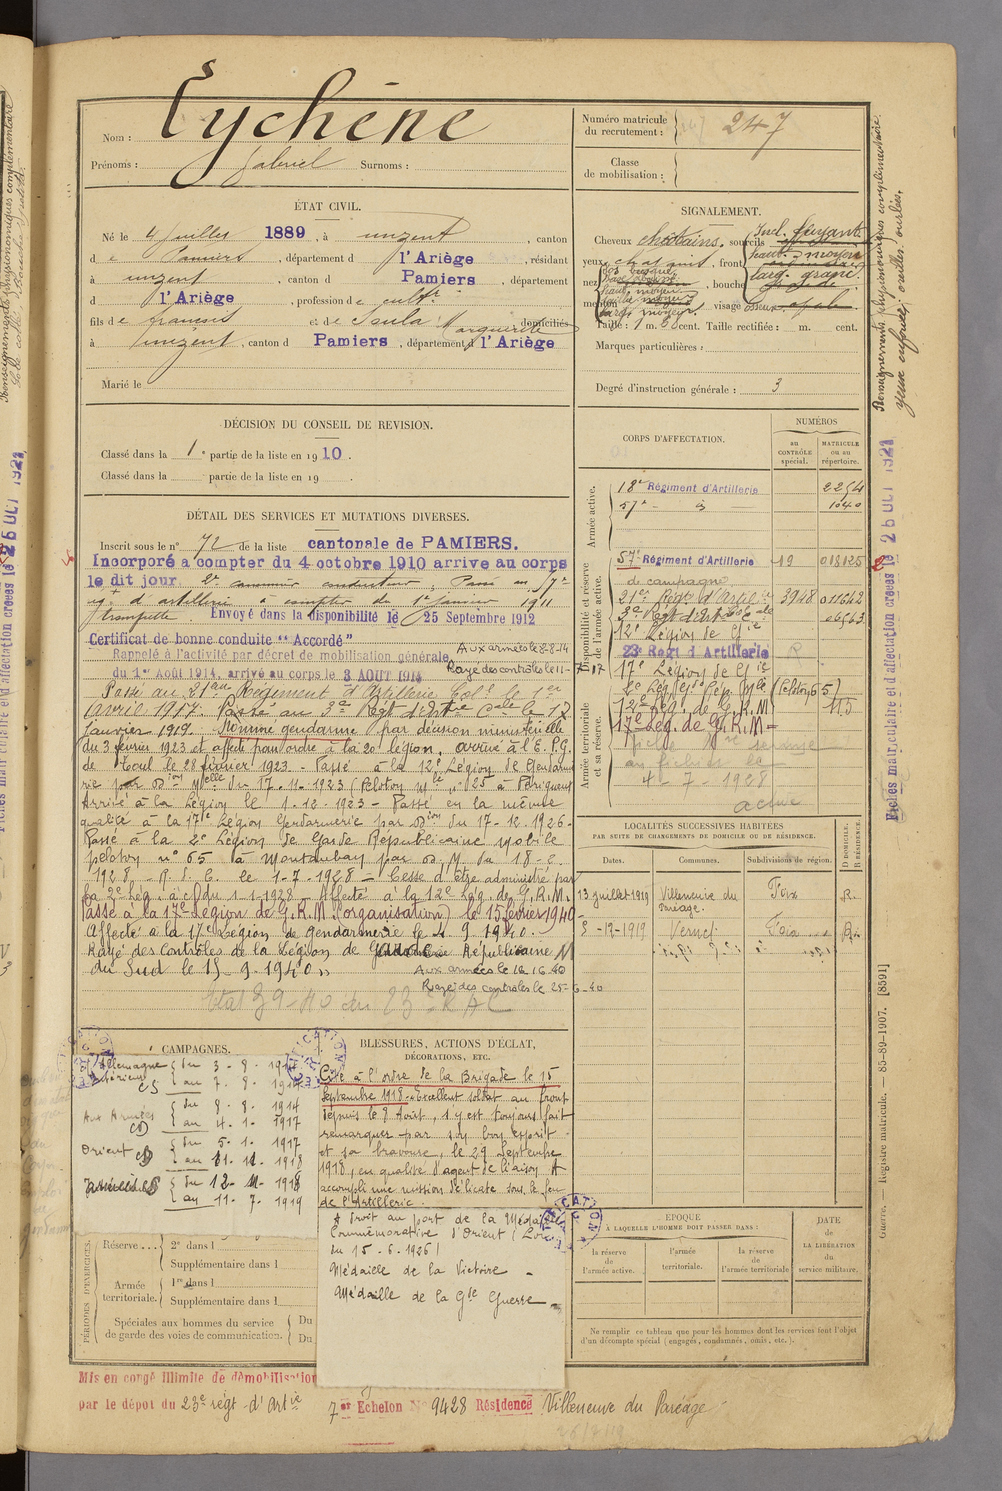 Nom : Eychène
Prénoms : Gabriel Surnoms :
Numéro matricule du recrutement : 247
Classe de mobilisation :
ÉTAT CIVIL.
Né le 4 juillet 1889, à Unzent, canton
de Pamiers, département d l'Ariège, résidant
à Unzent, canton d Pamiers, département
d l'Ariège, profession de cultr
fils de François et de Soula Marguerite domiciliés
à Unzent, canton d Pamiers, département d l'Ariège
Marié le
SIGNALEMENT.
Cheveux châtains. sourcils
yeux, front
nez, bouche
menton, visage
Taille : 1 m. cent. Taille rectifiée : m. cent.
Marques particulières :
Degré d'instruction générale : 3
Renseignements physionomiques complémentaires
yeux enfoncés; oreilles ourlées.
DÉCISION DU CONSEIL DE REVISION.
Classé dans la 1e partie de la liste en 1910.
Classé dans la partie de la liste en 19 .
DÉTAIL DES SERVICES ET MUTATIONS DIVERSES.
Inscrit sous le n° 72 de la liste cantonale de PAMIERS.
Incorporé à compter du 4 octobre 1910 arrive au corps
le dit jour 2e canonnier conducteur. Passé au 57e
rgt d'artillerie à compter du 1er Janvier 1911
trompette Envoyé dans la disponibilité le 25 Septembre 1912
Certificat de bonne conduite "Accordé"
Aux armées le 8-8-14
Rappelé à l'activité par décret de mobilisation générale
Rayé des contrôles le 11-7-17
du 1er Août 1914, arrivé au corps le 3 AOUT 1914
Passé au 21e Régiment d'Artillerie Colle le 1er
avril 1917. Passé au 3e Régt d'Artie Cale le 17
janvier 1919. Nommé gendarme par décision ministérielle
du 3 février 1923 et affecté pour ordre à la 20e légion, arrivé à l'E.P.G.
de Toul le 28 février 1923. - Passé à la 12e Légion de Gendarme
rie par don Mlle du 17-11-1923 (Peloton Mle n° 125 à Périgueux
Arrivé à la Légion le 1-12-1923 - Passé en la même
qualité à la 17e Légion Gendarmerie par Don du 17-12-1926-
Passé à la 2e Légion de Garde Républicaine Mobile
peloton n° 65 à Montauban par D. M. du 18-2-
1928 - R.S.C. le 1-7-1928 - Cesse d'être administré par
la 2e Lég. à c/ du 1-1-1928 - Affecté à la 12e Lég. de G.R.M.
Passé à la 17e Légion de G.R.M. (organisation) le 15 février 1940
Affecté à la 17e Légion de Gendarmerie le 9 1940.
Rayé des Contrôles de la Légion de Garde Républicaine M
du Sud le 15-9-1940
Aux armées le 16-40
Rayé des contrôles le 25-6-40
CORPS D'AFFECTATION.
NUMÉROS
au CONTRÔLE spécial.
MATRICULE ou au répertoire.
Armée active.
18e Régiment d'Artillerie 2254
57e - d° - 1040
Disponibilité et réserve de l'armée active.
57e Régiment d'Artillerie 19 018125
de campagne
21e Régt d'Artillie 3948 011642
3e Régt d'Artie Cale 06563
12e Légion de Gie
23e Regt d'Artillerie R
17e Légion de Gie
2e Légion Rép. Mle (Peloton 65)
12e Lég. de G.R.M 115
17e Lég. de G.R.M -
Armée territoriale et sa réserve.
4-7-1928
active
Fiches matriculaire et d'affectation créées le 26 OCT 1921
LOCALITÉS SUCCESSIVES HABITÉES
PAR SUITE DE CHANGEMENTS DE DOMICILE OU DE RÉSIDENCE.
Dates. Communes. Subdivisions de région. D DOMICILE. R RÉSIDENCE.
13 juillet 1919 Villeneuve du Paréage. Foix R.
-12-1919 Vernet Foix R.
CAMPAGNES.
Allemagne
Intérieur CS du 3-8-1914
au 7-8-1914
Aux Armées CD du 8-8-1914
au 4-1-1917
Orient CD du 5-1-1917
au 11-11-1918
CS du 12-11-1918
au 11-7-1919
BLESSURES, ACTIONS D'ÉCLAT,
DÉCORATIONS, ETC.
Cité à l'ordre de la Brigade le 15
Septembre 1918. Excellent soldat au front
depuis le 8 Août, s'y est toujours fait
remarquer par son bon esprit
et sa bravoure, le 29 Septembre
1918, en qualité d'agent de liaison A
accompli une mission délicate sous le feu
de l'Artillerie
A droit au port de la Médaille
Commémorative d'Orient (Loi
du 15-6-1926)
Médaille de la Victoire -
Médaille de la Gde Guerre -
PÉRIODES D'EXERCICES.
Réserve... 2e dans l
Supplémentaire dans l
Armée territoriale. 1re dans l
Supplémentaire dans l
Spéciales aux hommes du service de garde des voies de communication. Du
Du
ÉPOQUE
À LAQUELLE L'HOMME DOIT PASSER DANS :
la réserve de l'armée active.
l'armée territoriale.
la réserve de l'armée territoriale
DATE de LA LIBÉRATION du service militaire.
Ne remplir ce tableau que pour les hommes dont les services font l'objet
d'un décompte spécial (engagés, condamnés, omis, etc.).
Guerre. — Registre matricule. — 85-89-1907. [8591]
Mis en congé illimité de démobilisation
par le dépôt du 23e régt d'Artie 7er Echelon N° 9428 Résidence Villeneuve du Paréage